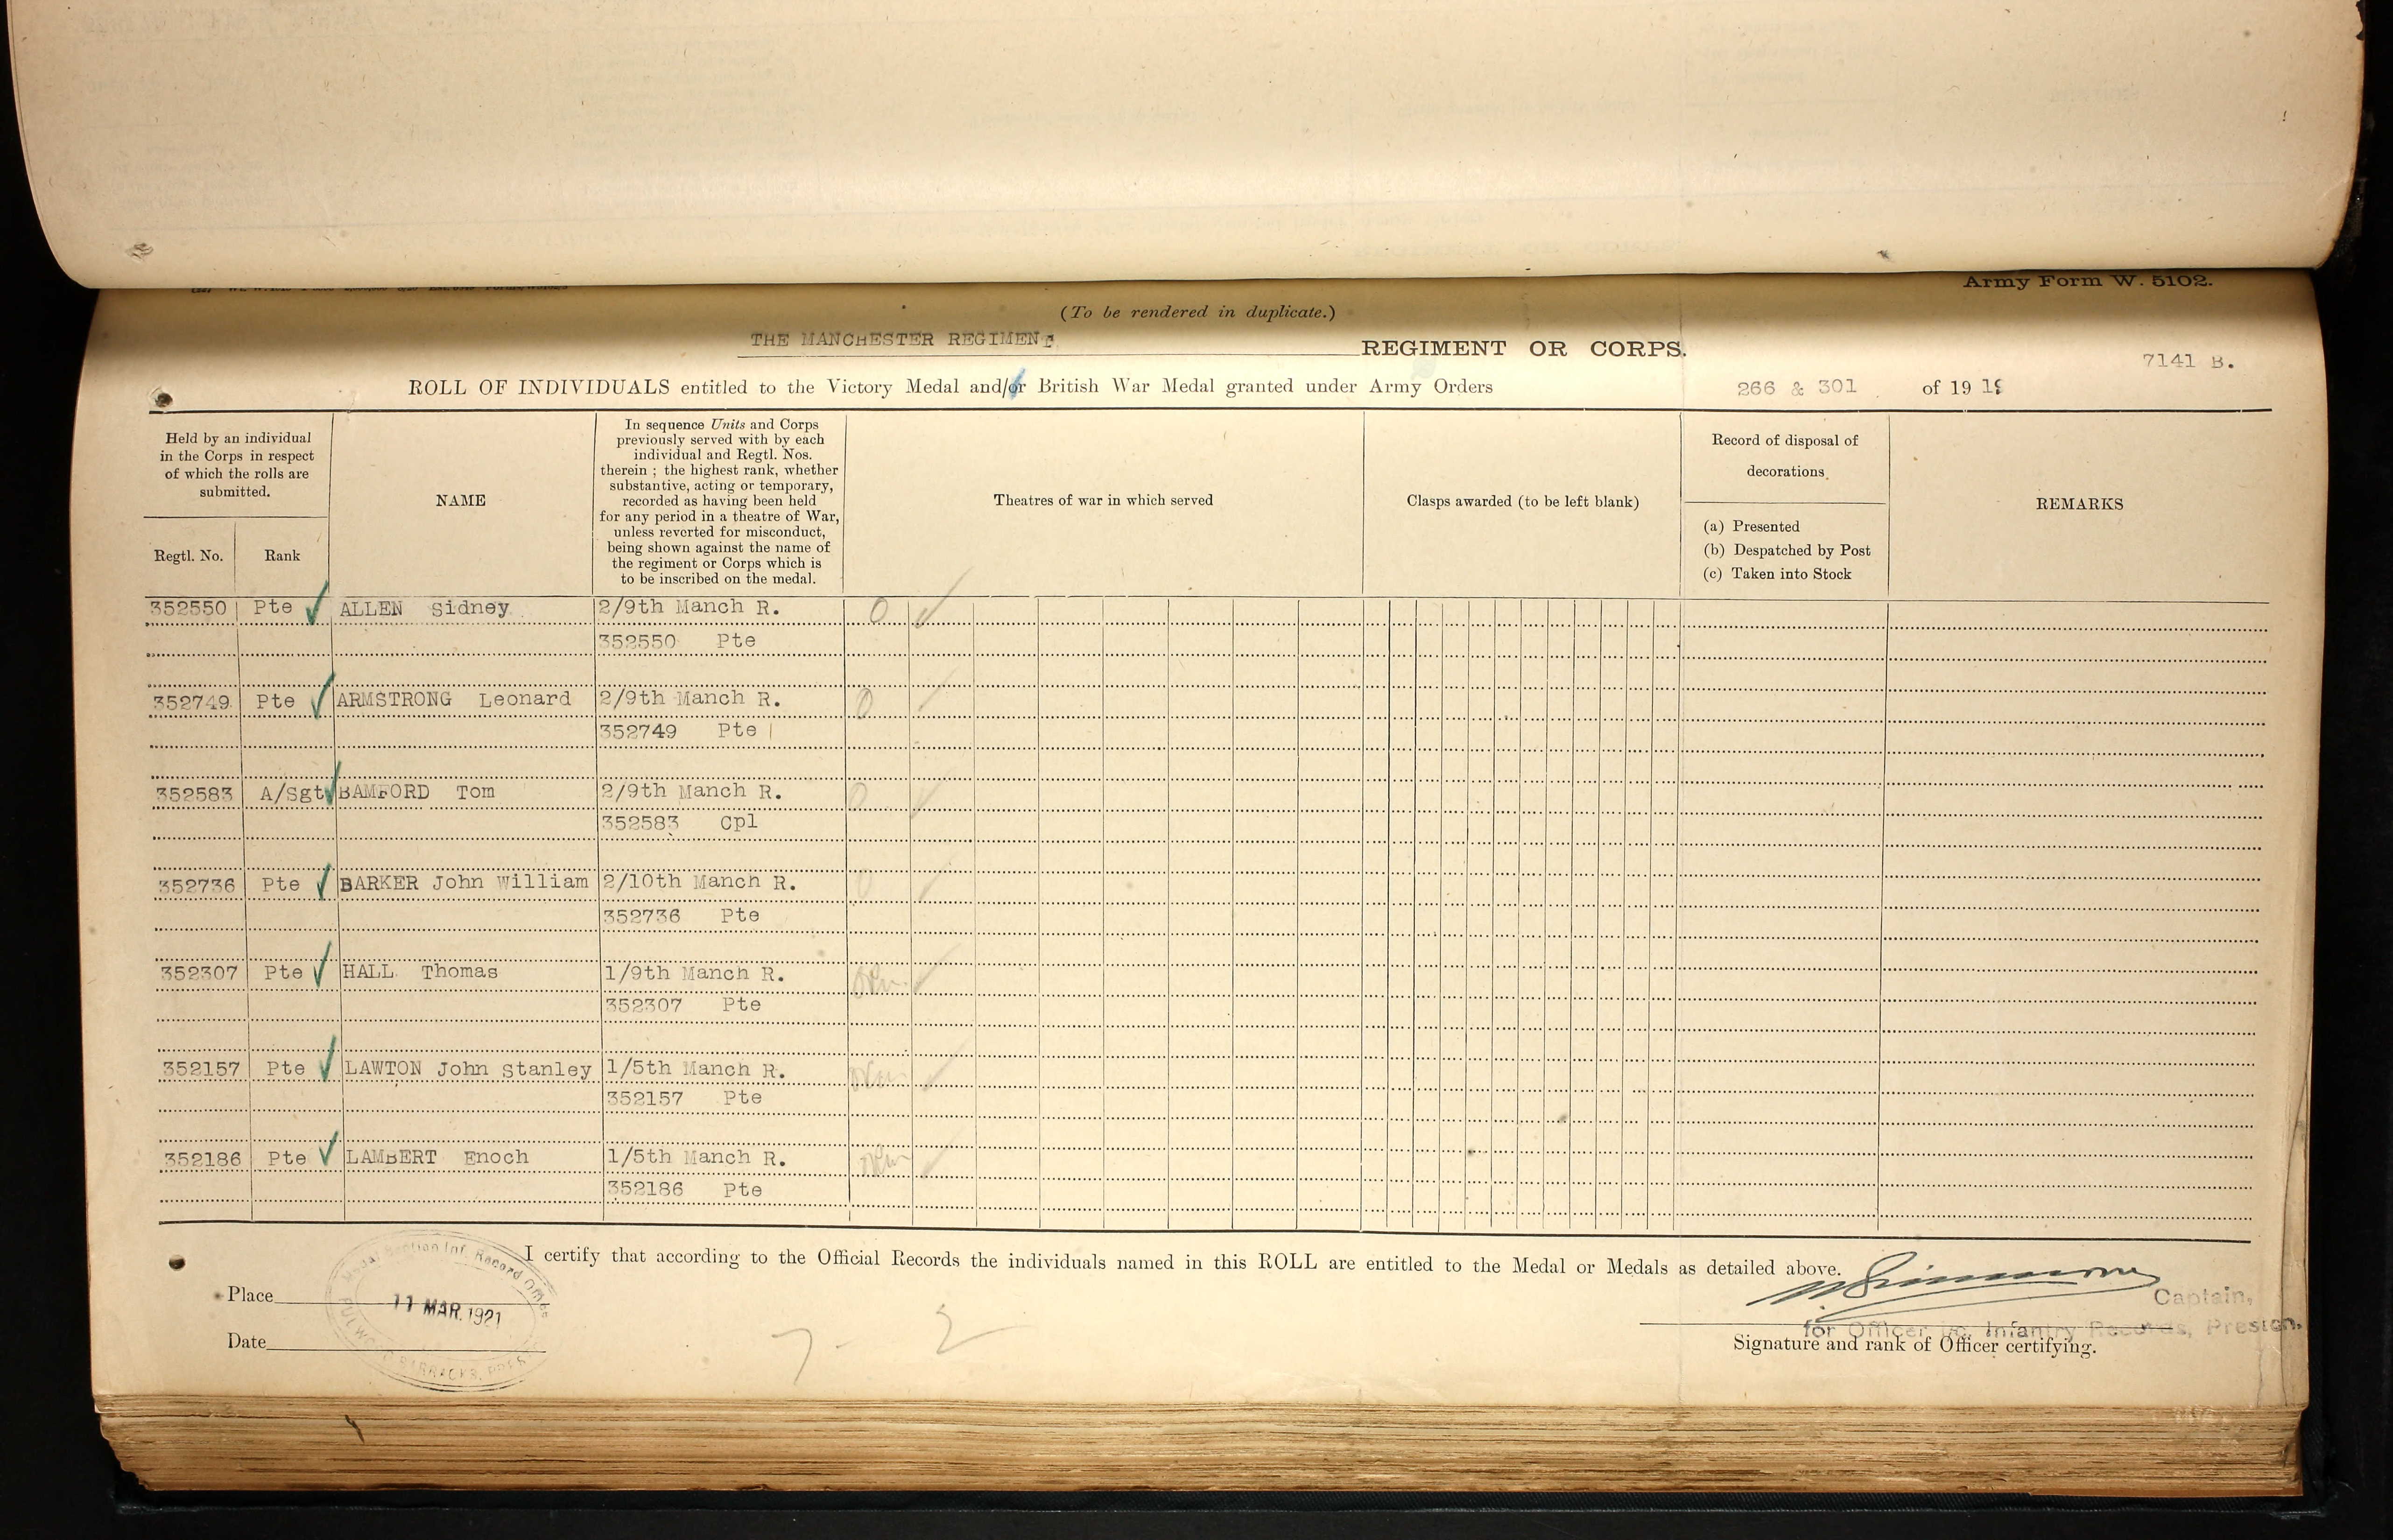 Army Form W. 5102.
(To be rendered in duplicate.)
THE MANCHESTER REGIMENT REGIMENT OR CORPS.
7141 B.
ROLL OF INDIVIDUALS entitled to the Victory Medal and/or British War Medal granted under Army Orders 266 & 301 of 19 19
Held by an individual
in the Corps in respect
of which the rolls are
submitted.
Regtl. No. Rank
NAME
In sequence Units and Corps
previously served with by each
individual and Regtl. Nos.
therein ; the highest rank, whether
substantive, acting or temporary,
recorded as having been held
for any period in a theatre of War,
unless reverted for misconduct,
being shown against the name of
the regiment or Corps which is
to be inscribed on the medal.
Theatres of war in which served
Clasps awarded (to be left blank)
Record of disposal of
decorations.
(a) Presented
(b) Despatched by Post
(c) Taken into Stock
REMARKS
352550 Pte ALLEN Sidney 2/9th Manch R. O
352550 Pte
352749 Pte ARMSTRONG Leonard 2/9th Manch R. O
352749 Pte
352583 A/Sgt BAMFORD Tom 2/9th Manch R. O
352583 Cpl
352736 Pte BARKER John William 2/10th Manch R. O
352736 Pte
352307 Pte HALL Thomas 1/9th Manch R.
352307 Pte
352157 Pte LAWTON John Stanley 1/5th Manch R.
352157 Pte
352186 Pte LAMBERT Enoch 1/5th Manch R.
352186 Pte
I certify that according to the Official Records the individuals named in this ROLL are entitled to the Medal or Medals as detailed above.
Medal Section Inf. Record Office
Place
11 MAR. 1921
Date
BARRACKS,
7 - 2
Captain,
for Officer i/c. Infantry Records, Preston.
Signature and rank of Officer certifying.